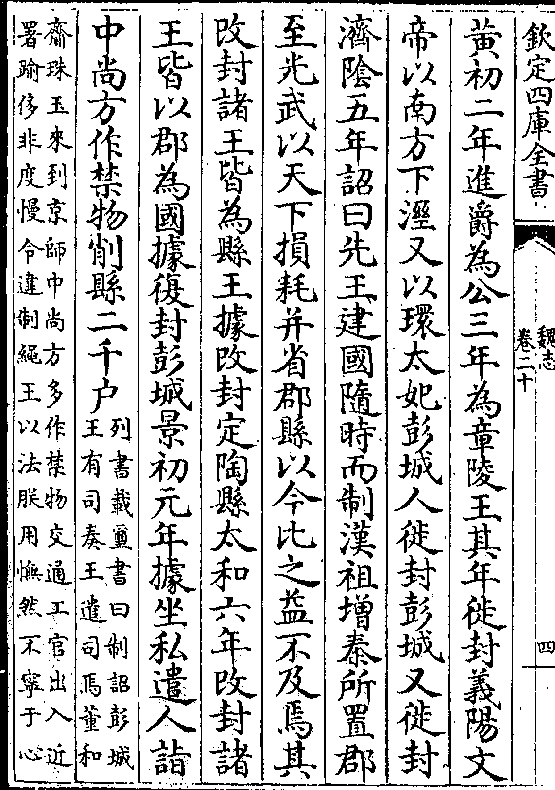 欽定四庫全書
魏志
卷二十
四
黃初二年進爵為公三年為章陵王其年徙封義陽文
帝以南方下溼又以環太妃彭城人徙封彭城又徙封
濟陰五年詔曰先王建國隨時而制漢祖增秦所置郡
至光武以天下損耗并省郡縣以今比之益不及焉其
改封諸王皆為縣王據改封定陶縣太和六年改封諸
王皆以郡為國據復封彭城景初元年據坐私遣人詣
中尚方作禁物削縣二千户
列書載璽書曰制詔彭城
王有司奏王遣司馬董和
齎珠玉來到京師中尚方多作禁物交通工官出入近
署踰侈非度慢令違制繩王以法朕用憮然不寧于心